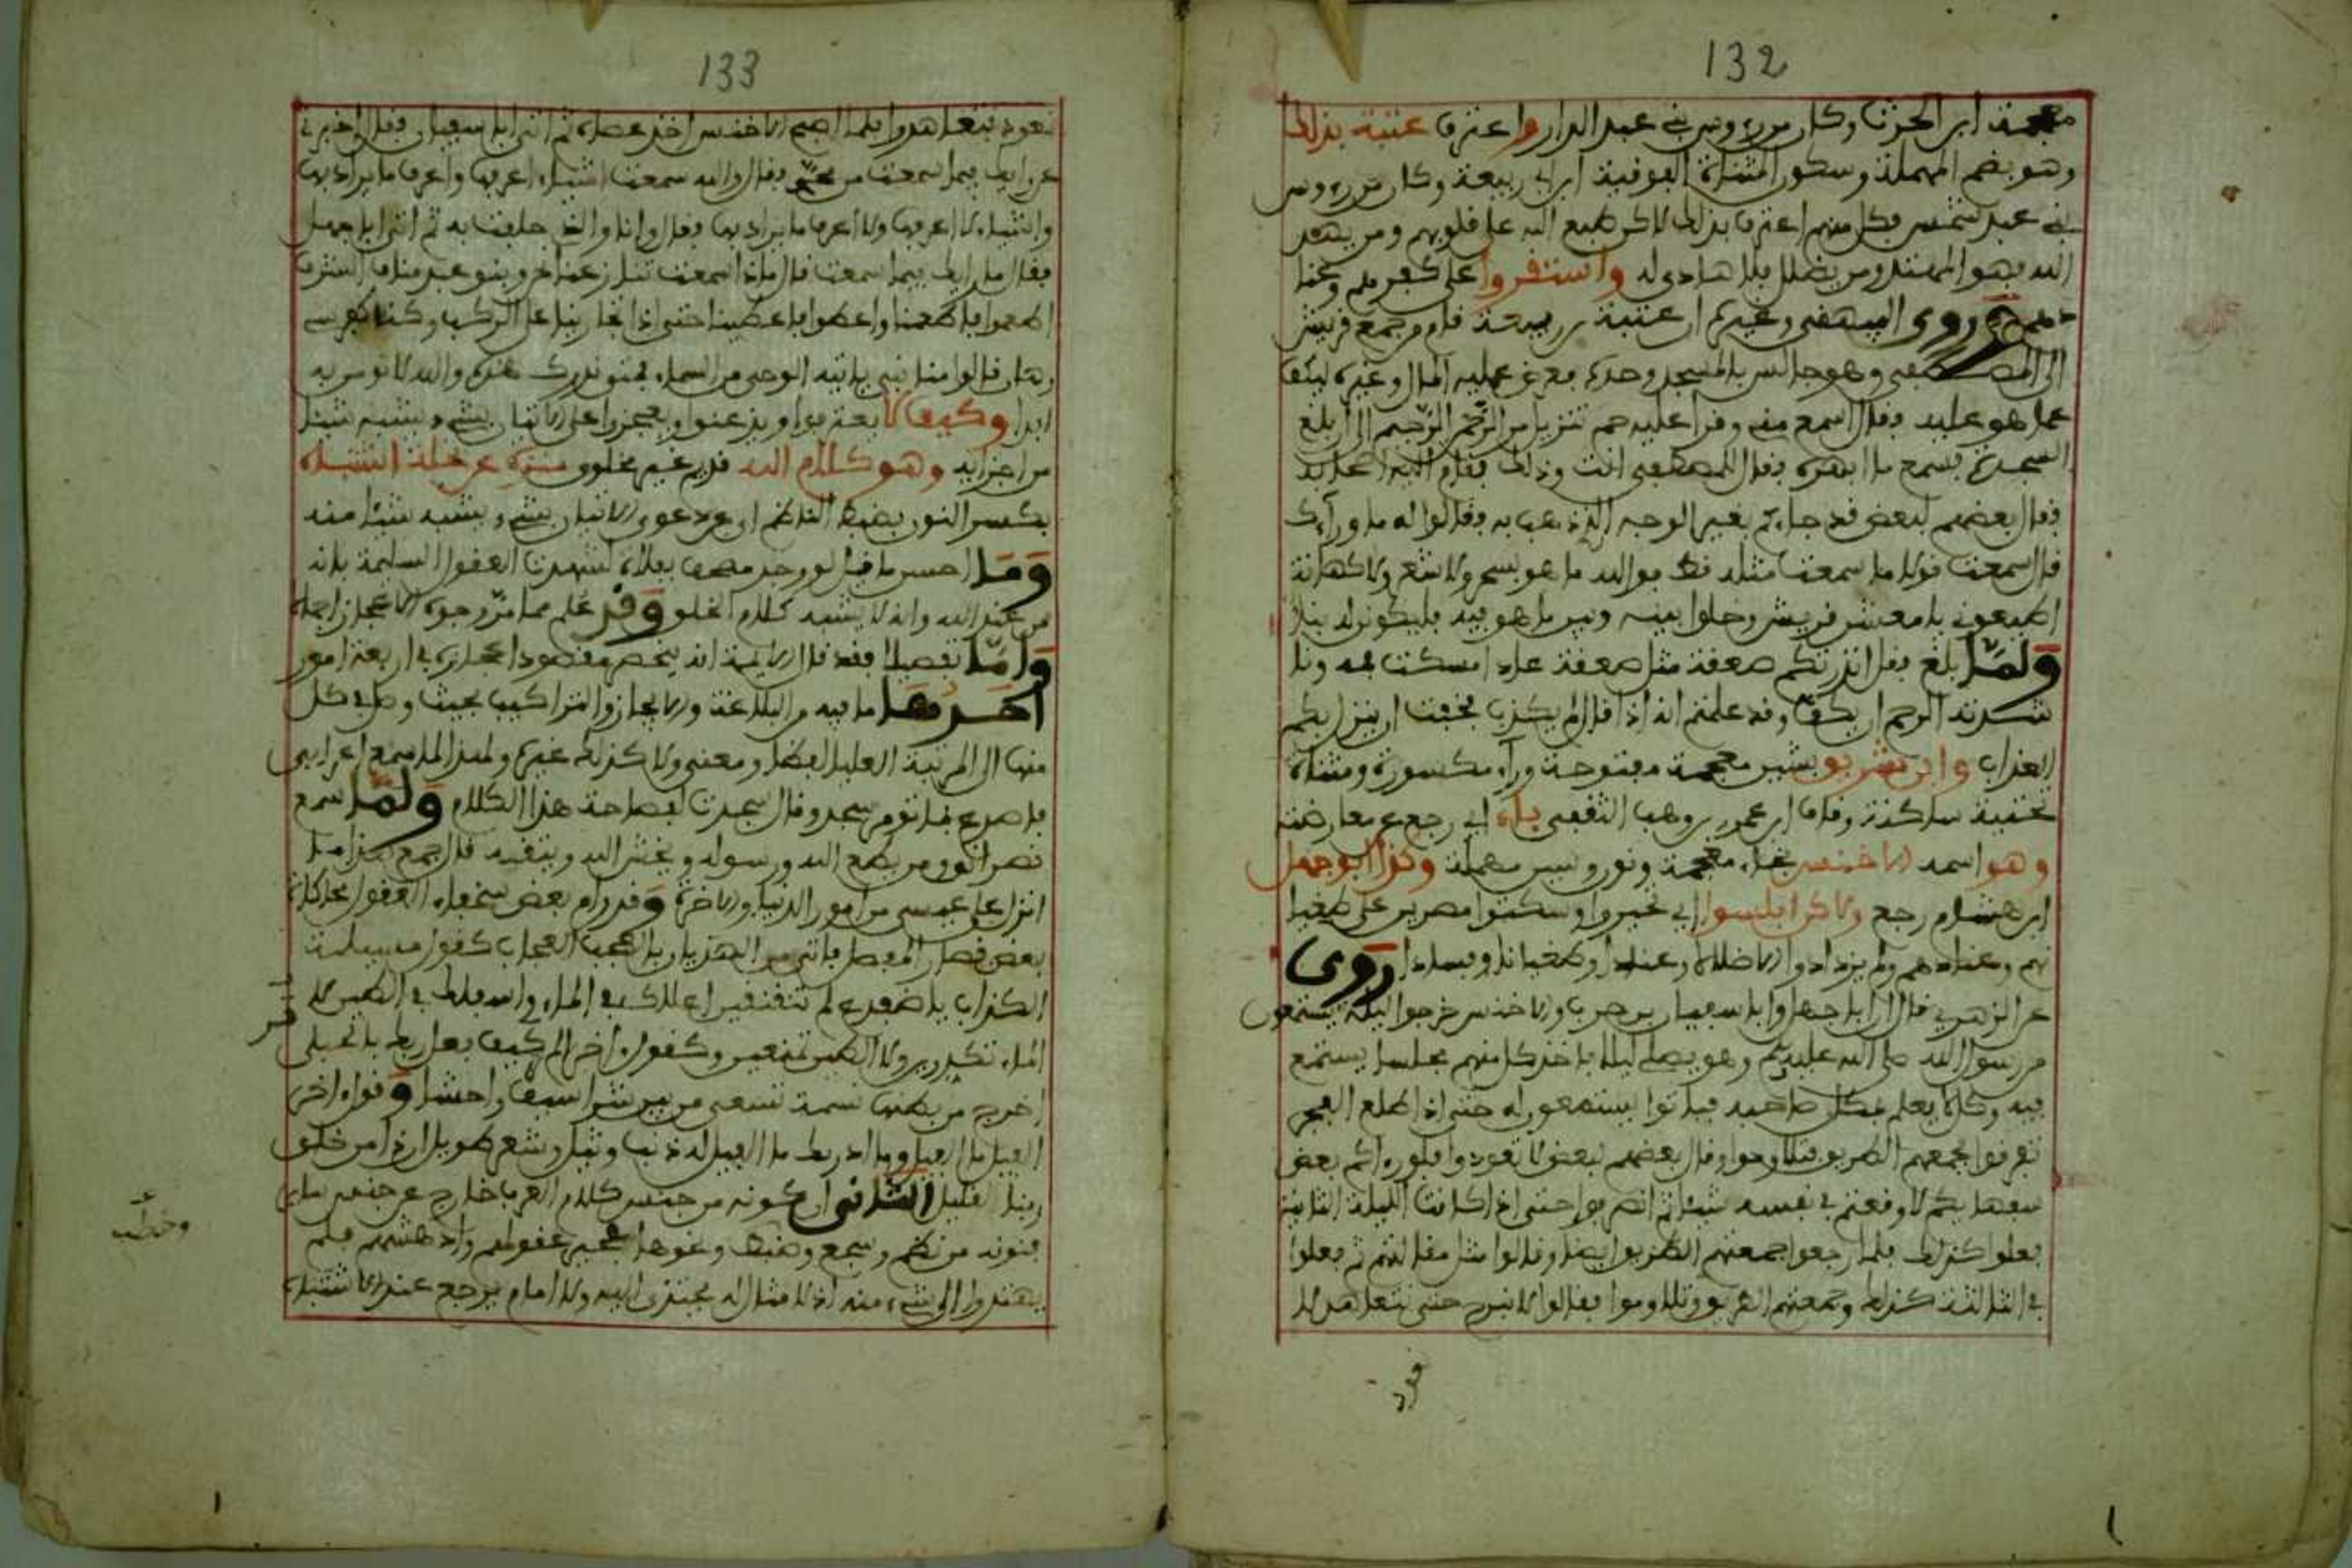 132
معجمة ابن الحرث وكان من رءوس بني عبد الدار واعترف عتبة بذلك
وهو بضم المهملة وسكون المثناة الفوقية ابن ربيعة وكان من رءوس
بني عبد شمس فكل منهم اعترف بذلك لاكن طبع الله على قلوبهم ومن يهد
الله فهو المهتد ومن يضلل فلا هادي له واستقروا على كفرهم
روى البيهقي وغيره ان عتبة بن ربيعة قام من جمع قريش
الى المصطفى وهو جالس بالمسجد وحده فعرض عليه المال وغيره ليكف
عما هو عليه فقال اسمع مني وقرأ عليه حم تنزيل من الرحمن الرحيم الى ان بلغ
السجدة فسمع ما ابهره فقال المصطفى انت وذلك فقام الى اصحابه
فقال بعضهم لبعض قد جاءكم بغير الوجه الذي ذهب به فقالوا له ما ورآءك
قال سمعت قولا ما سمعت مثله قط فوالله ما هو بسحر ولا شعر ولا كهانة
اطيعوني يا معشر قريش وخلوا بينه وبين ما هو فيه فليكونن له نبأ
ولما بلغ فقل انذرتكم صعقة مثل صعقة عاد امسكت فمه
نشدته الرحم ان يكف وقد علمتم انه اذا قال لم يكذب فخفت ان ينزل بكم
العذاب وابن شريق بشين معجمة مفتوحة ورآء مكسورة ومثناة
تحتية ساكنة وقاف ابن عمرو بن وهب الثقفي باء اي رجع عن معارضته
وهو اسمه الاخنس بخاء معجمة ونون وسين مهملة وكذا ابو جهل
ابن هشام رجع ولاكن ابلسوا اي تحيروا وسكتوا مصرين على
وعنادهم ولم يزدادوا الا ضلالا وعنادا وطغيانا وفسادا روى
عن الزهري قال ان ابا جهل وابا سفيان بن حرب والاخنس خرجوا ليلة يستمعون
من رسول الله صلى الله عليه وسلم وهو يصلي ليلا فاخذ كل منهم مجلسا يستمع
فيه وكل لا يعلم بمكان صاحبه فباتوا يستمعون له حتى اذا طلع الفجر
تفرقوا فجمعهم الطريق فتلاوموا وقال بعضهم لبعض لا تعودوا فلو رءاكم بعض
سفهائكم لاوقعتم في نفسه شيئا ثم انصرفوا حتى اذا كانت الليلة الثانية
فعلوا كذلك فلما رجعوا جمعتهم الطريق ايضا وقالوا مثل مقالتهم ثم فعلوا
في الثالثة كذلك وجمعتهم الطريق وتلاوموا فقالوا لا نبرح حتى نتعاهد لا
133
نعود فتعاهدوا فلما اصبح الاخنس اخذ عصاه ثم اتى ابا سفيان فقال اخبرني
عن رأيك فيما سمعت من محمد فقال والله سمعت اشياء اعرفها واعرف ما يراد بها
واشياء لا اعرفها ولا أعرف ما يراد بها فقال وانا والذي حلفت به ثم اتى ابا جهل
فقال ما رايك فيما سمعت قال ماذا سمعت تنازعنا نحن وبنو عبد مناف الشرف
اطعموا فاطعمنا واعطوا فاعطينا حتى اذا تجاثينا على الركب وكنا كفرسي
رهان قالوا منا نبي ياتيه الوحي من السماء فمتى ندرك هذه والله لا نومن به
ابدا وكيف لا يعترفوا ويذعنوا ويعجزوا على الاتيان بشيء يشبه شيئا
من اجزايه وهو كلام الله قديم غير مخلوق منزه عن جملة اشباه
بكسر النون بضبط الناظم اي عن دعوى الاتيان بشيء يشبه شيئا منه
وما احسن ما قيل لو وجد مصحف بفلاة لشهدت العقول السليمة بانه
من عند الله وانه لا يشبه كلام الخلق وقد علم مما مر وجوه الاعجاز اجمالا
واما تفصيلا فقد قال الايمة انه ينحصر مقصود اعجازه في اربعة امور
احدها ما فيه من البلاغة والايجاز والتراكيب بحيث وصل في كل
منها الى المرتبة العليا لفظا ومعنى ولا كذلك غيره ولهذا لما سمع اعرابي
فاصدع بما تومر سجد وقال سجدت لفصاحة هذا الكلام ولما سمع
نصراني ومن يطع الله ورسوله ويخش الله ويتقه قال جمع هذا ما
انزل على عيسى من امور الدنيا والاخرة وقد رام بعض سخفاء العقول محاكاة
بعض قصار المفصل فاتى من الهذيان بالعجب العجاب كقول مسيلمة
الكذاب يا ضفدع كم تنقنقين اعلاك في الماء واسفلك في الطين لا
الماء تكدرين ولا الطين تمنعين وكقول ءاخر الم تر كيف فعل ربك بالحبلى
اخرج من بطنها نسمة تسعى من بين شراسيف واحشا وقول ءاخر
الفيل ما الفيل وما ادريك ما الفيل له ذنب وثيل ومشفر طويل ان ذا من خلق
ربنا لقليل الثاني ان كونه من جنس كلام العرب خارج عن جنس سائر
فنونه من نظم وسجع وخطب ونحوها حير عقولهم وادهشهم فلم
يهتدوا الى شيء منه اذ لا مثال له يحتذى اليه ولا امام يرجع عند الاشتباه